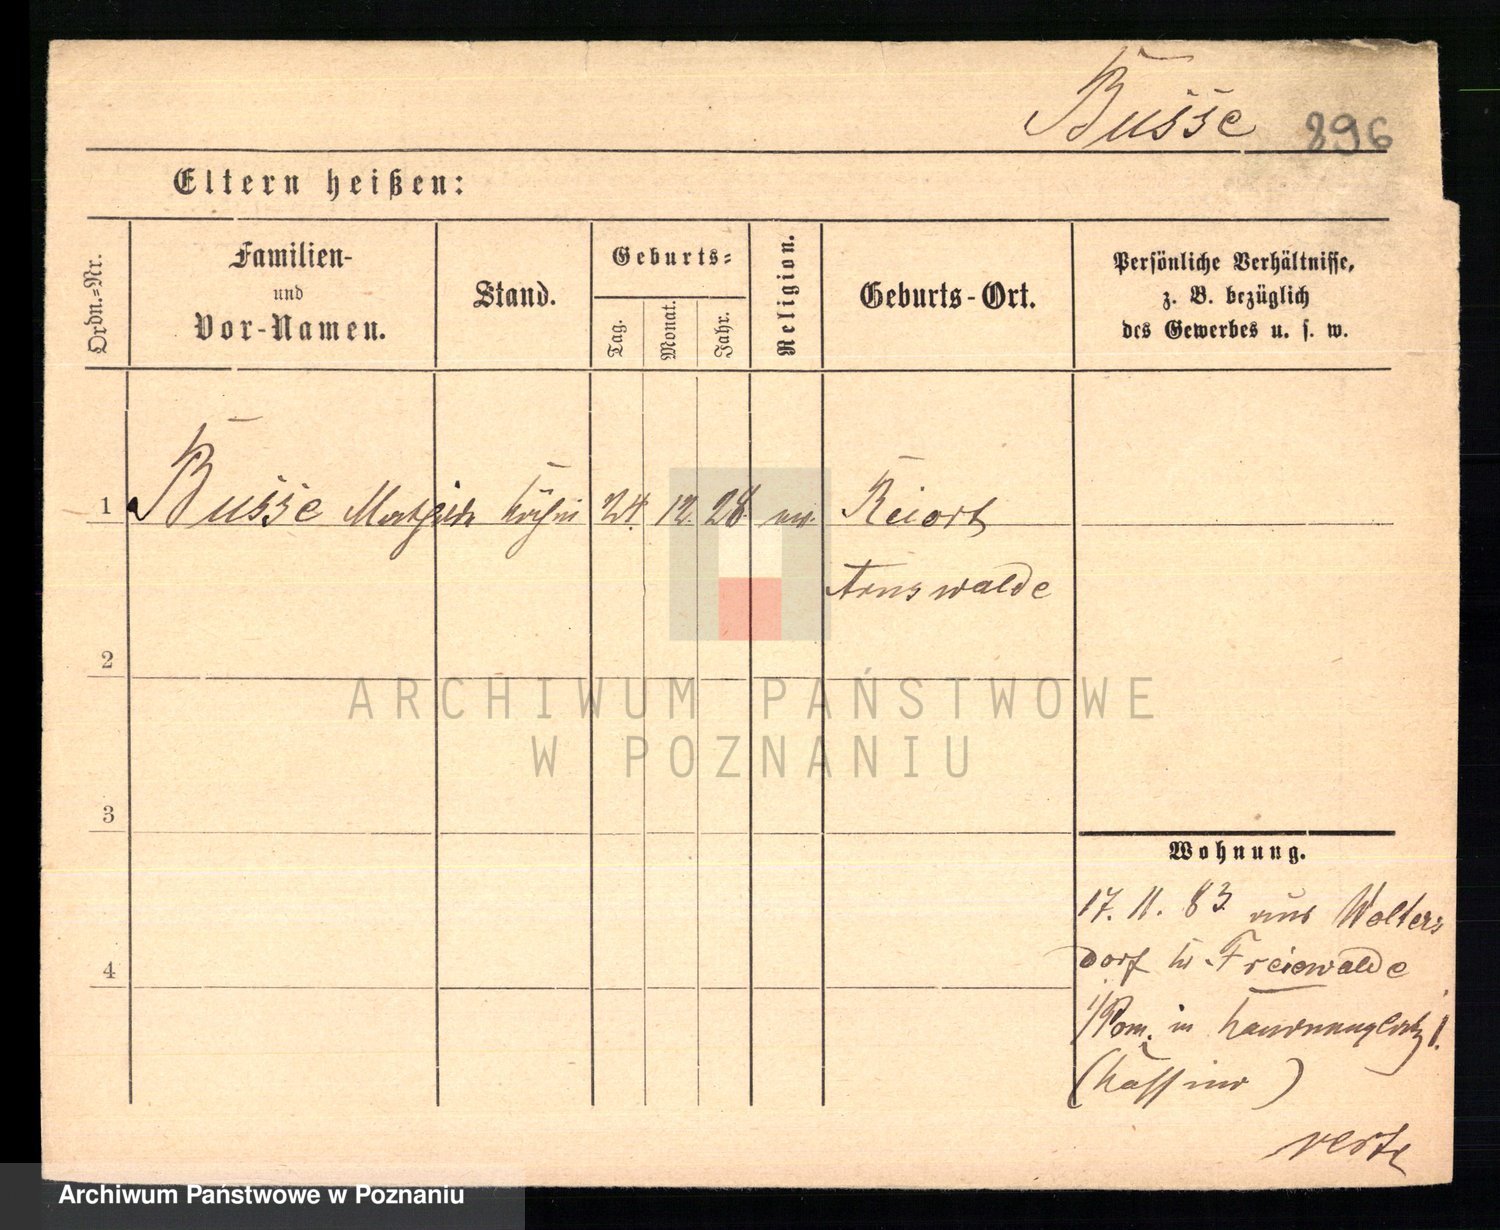 Busse 896
Eltern heißen:
Ordn.=Nr.
Familien-
und
Vor-Namen.
Stand.
Geburts=
Tag.
Monat.
Jahr.
Religion.
Geburts-Ort.
Persönliche Verhältnisse,
z. B. bezüglich
des Gewerbes u. s. w.
1 Busse Mathilde Köchin 24. 12. 28. ev. Reiort
Arnswalde
2
ARCHIWUM PAŃSTWOWE
W POZNANIU
3
Wohnung.
17. 11. 83. aus Wolters
dorf Kr. Freiewalde
4
i/Pom. in 1.
verte
Archiwum Państwowe w Poznaniu